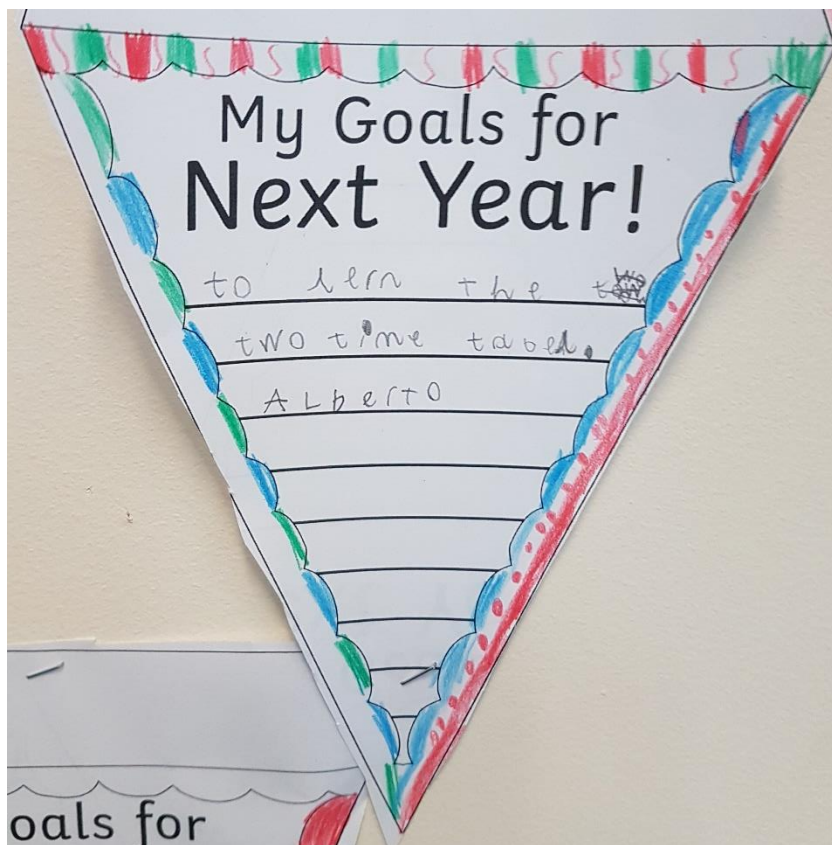 My Goals for
Next Year!
to lern the
two time tabel.
ALberto
oals for